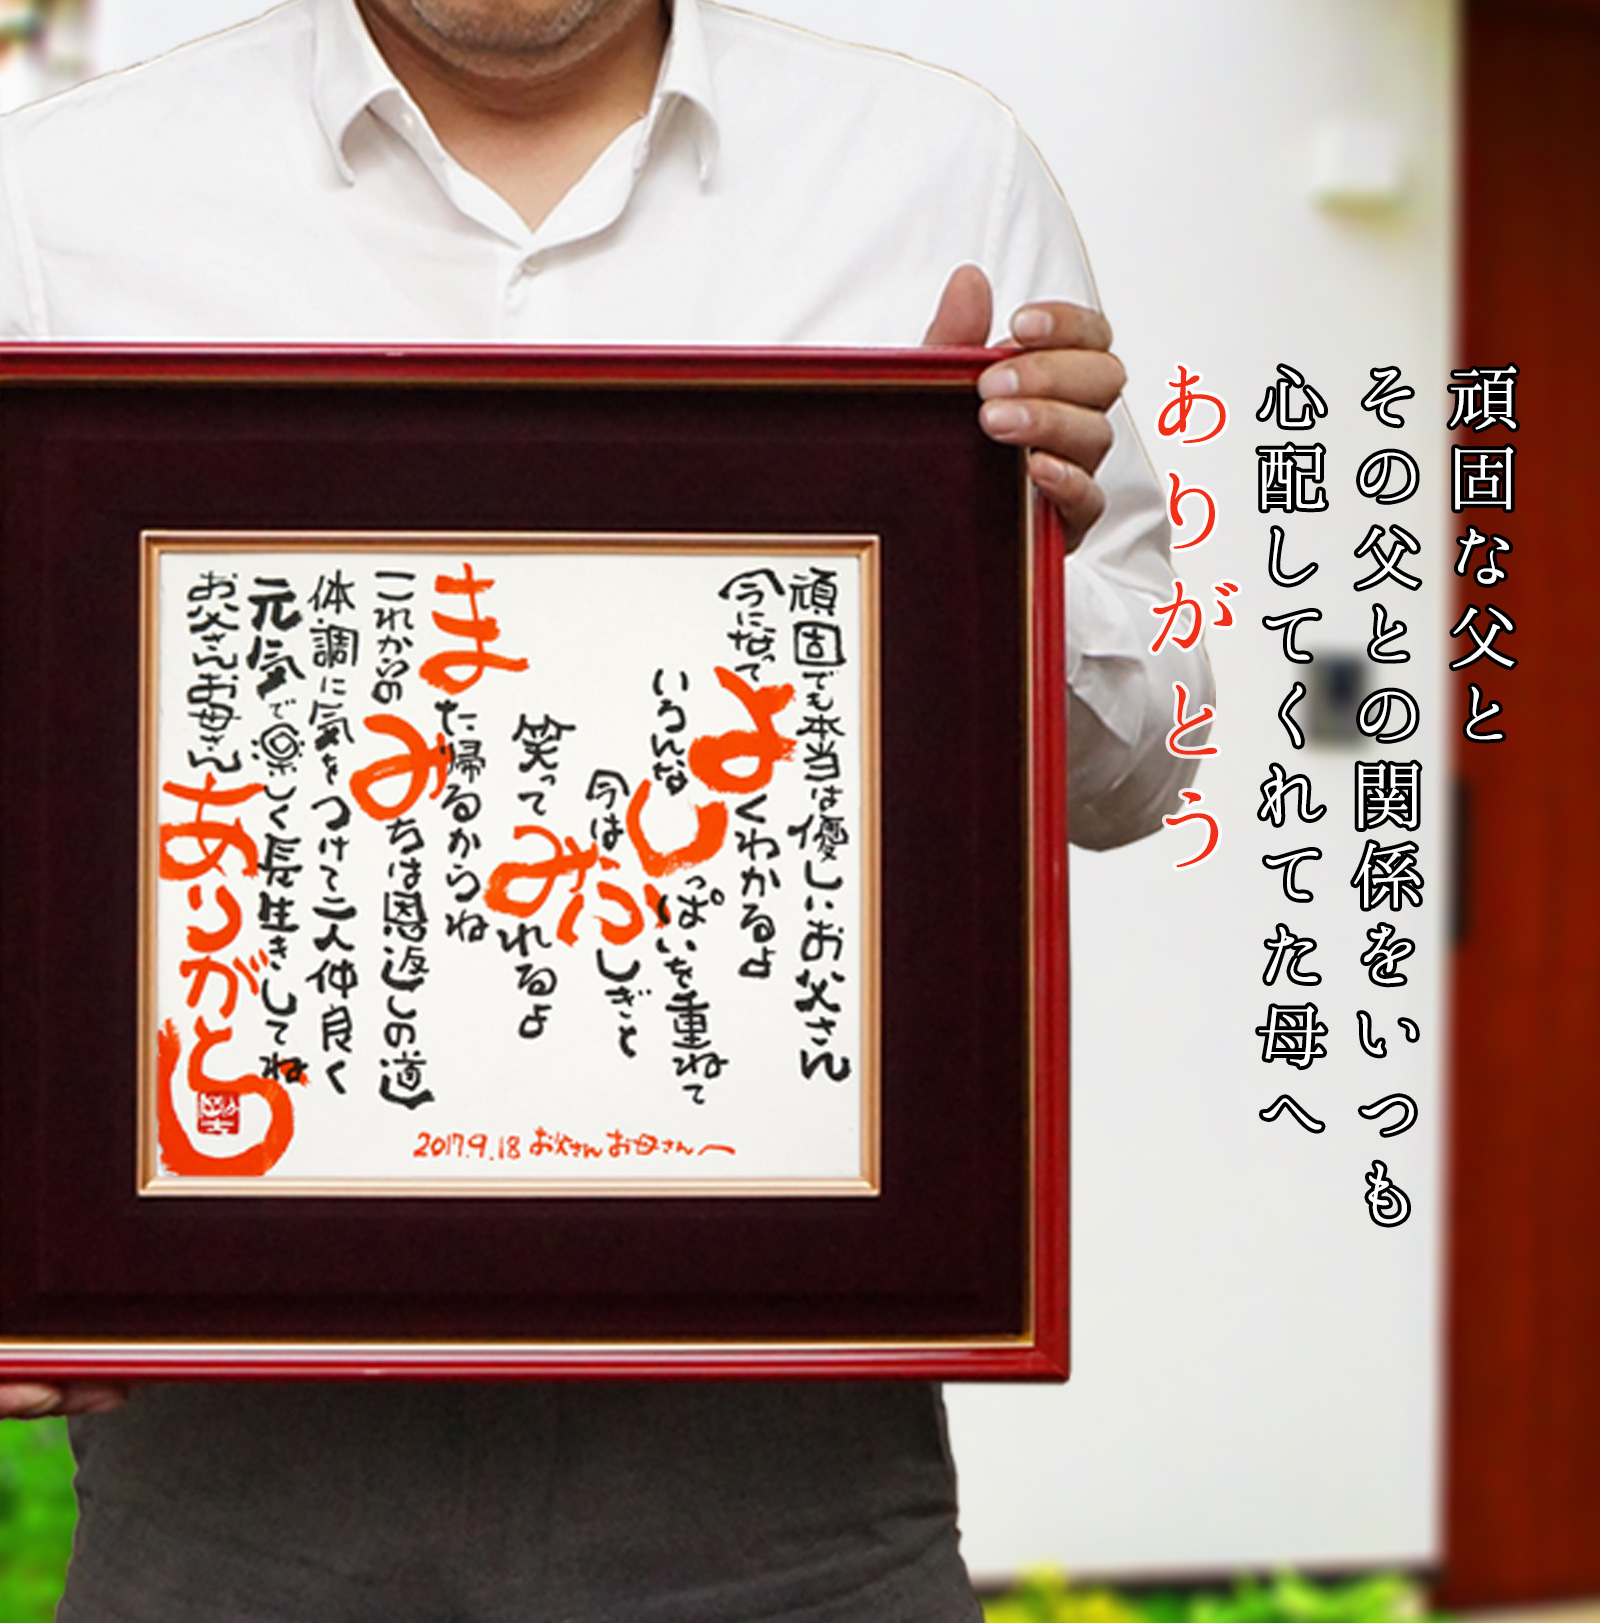 頑固な父と
その父との関係をいつも
心配してくれてた母へ
ありがとう
頑固でも本当は優しいお父さん
今になって
よくわかるよ
いろんな
いっぱいを重ねて
今は
ふしぎと
笑って
みれるよ
また帰るからね
これからの
みちは恩返しの道
体調に気をつけて二人仲良く
元気で楽しく長生きしてね
お父さんお母さん
ありがとう
2017.9.18 お父さんお母さんへ